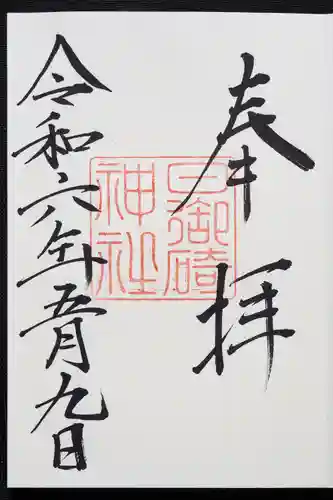 奉拝
日御碕
神社
令和六年五月九日